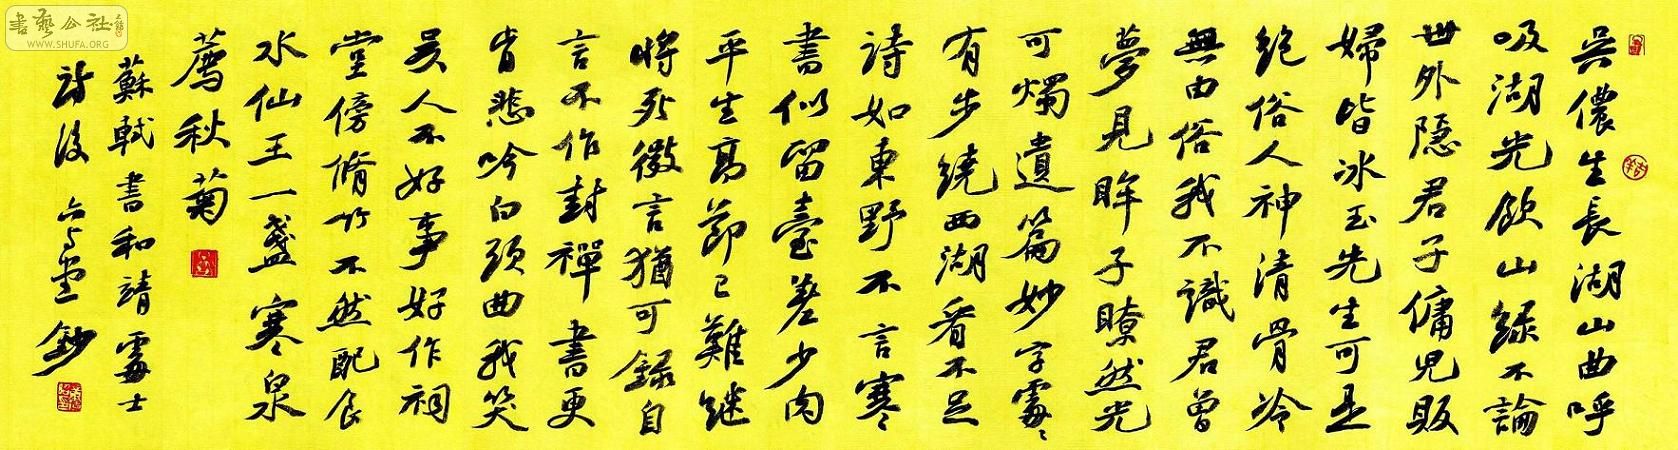 書藝公社
WWW.SHUFA.ORG
吳儂生長湖山曲呼
吸湖光飲山緑不論
世外隱君子傭兒販
婦皆冰玉先生可是
絶俗人神清骨冷
無由俗我不識君曾
夢見眸子瞭然光
可燭遺篇妙字處〻
有步繞西湖看不足
詩如東野不言寒
書似留臺差少肉
平生高節已難継
將死微言猶可録自
言不作封禪書更
肯悲吟白頭曲我笑
吳人不好事好作祠
堂傍脩竹不然配食
水仙王一盞寒泉
薦秋菊
蘇軾書和靖處士
詩後 堂鈔